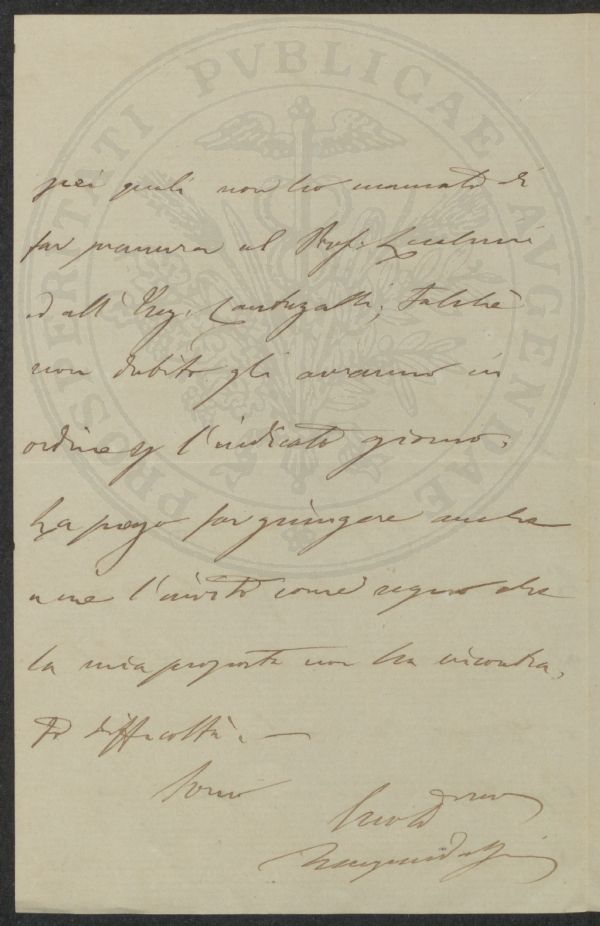 PROSPERITATI PVBLICAE AVGENDAE
pei quali non ho mancato di
far premura al Prof.
ed all' Ing. ; talchè
non dubito gli avranno in
ordine l'indicato giorno.
La prego far giungere anche
a me l'invito come segno che
la mia proposta non ha incontra-
to difficoltà. —
Sono